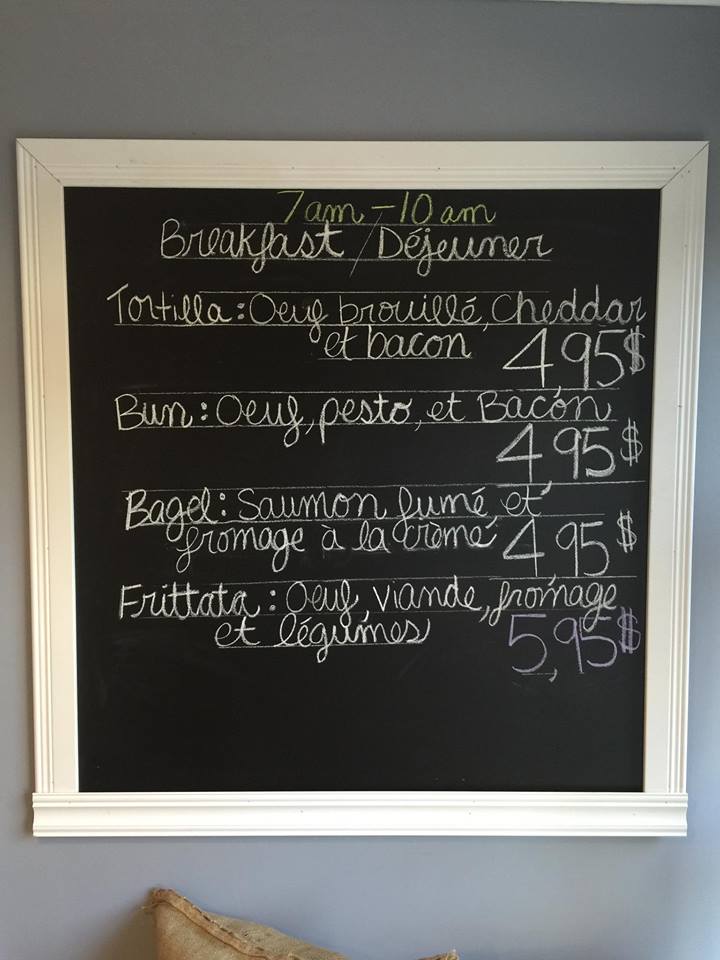 7am - 10am
Breakfast / Déjeuner
Tortilla : Oeuf brouillé, Cheddar
et bacon 4,95$
Bun : Oeuf, pesto, et Bacon
4,95$
Bagel : Saumon fumé et
fromage à la crème 4,95$
Frittata : Oeuf, viande, fromage
et légumes 5,95$